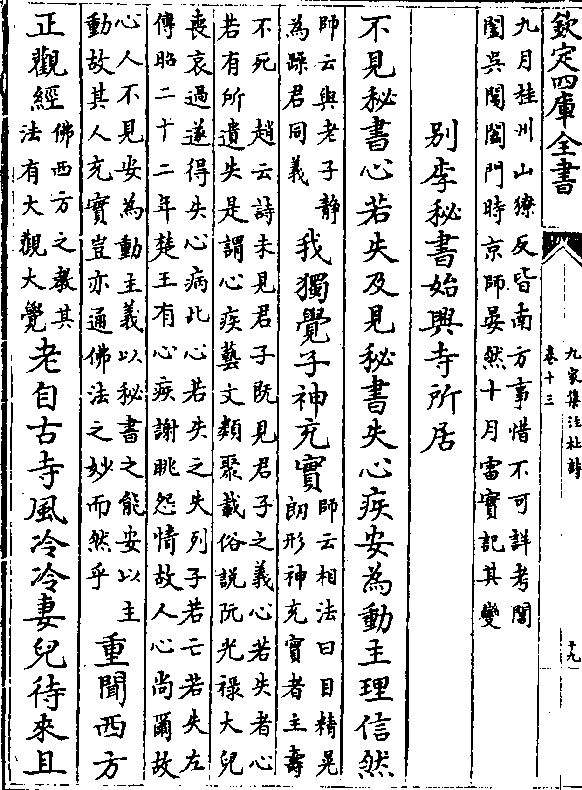 欽定四庫全書
九家集注杜詩
卷十三
十九
九月桂州山獠反皆南方事惜不可詳考閶
闔吳閶闔門時京師晏然十月雷實記其變
別李秘書始興寺所居
不見秘書心若失及見秘書失心疾安為動主理信然
師云與老子静
為躁君同義
我獨覺子神充實
師云相法曰目精晃
朗形神充實者主壽
不死 趙云詩未見君子既見君子之義心若失者心
若有所遺失是謂心疾藝文類聚載俗說阮光祿大兒
喪哀過遂得失心病此心若失之失列子若亡若失左
傳昭二十二年楚王有心疾謝眺怨情故人心尚爾故
心人不見安為動主義以秘書之能安以主
動故其人充實豈亦通佛法之妙而然乎
重聞西方
正觀經
佛西方之教其
法有大觀大覺
老自古寺風冷冷妻兒待來且